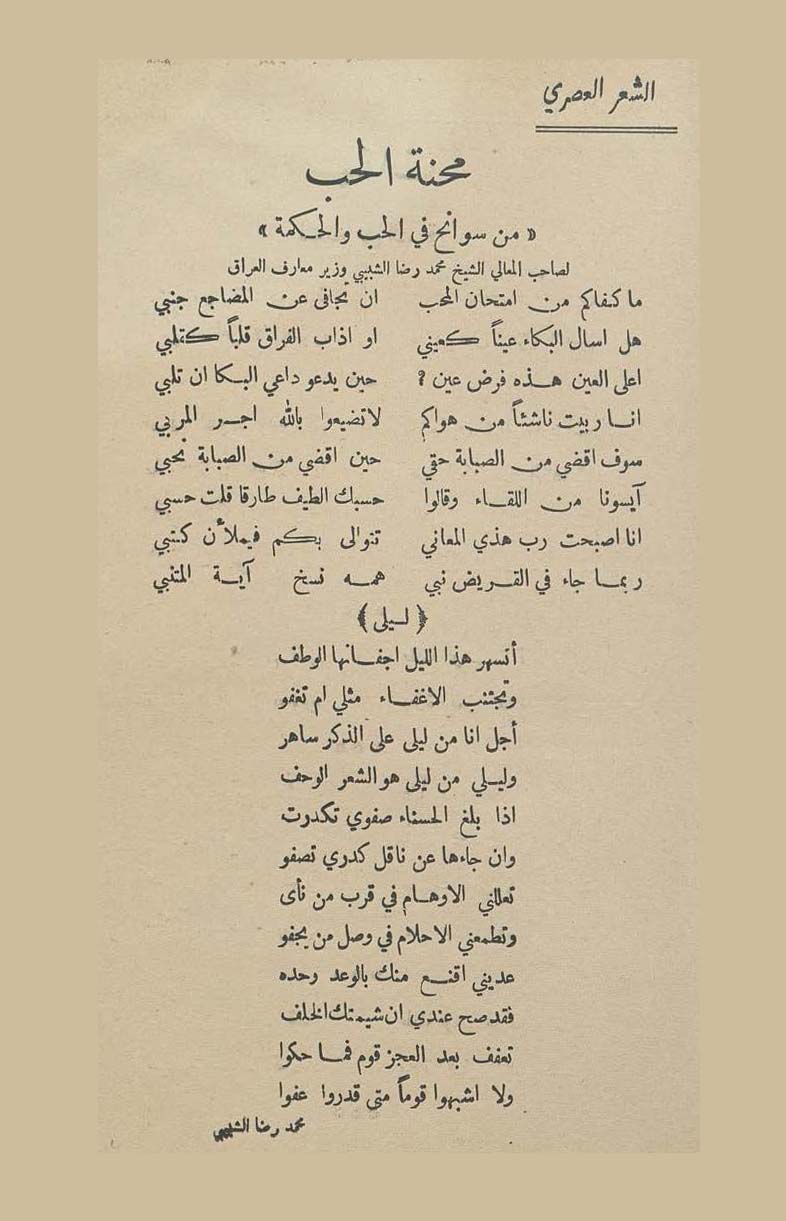 الشعر العصري
محنة الحب
« من سوانح في الحب والحكمة »
لصاحب المعالي الشيخ محمد رضا الشبيبي وزير معارف العراق
ما كفاكم من امتحان المحب ان تجافى عن المضاجع جنبي
هل اسال البكاء عيناً كعيني او اذاب الفراق قلباً كقلبي
اعلى العين هذه فرض عين ؟ حين يدعو داعي البكا ان تلبي
انا ربيت ناشئاً من هواكم لا تضيعوا بالله اجر المربي
سوف اقضي من الصبابة حتي حين اقضي من الصبابة نحبي
آيسونا من اللقاء وقالوا حسبك الطيف طارقا قلت حسبي
انا اصبحت رب هذي المعاني تتوالى بكم فيملأن كتبي
ربما جاء في القريض نبي همه نسخ آية المتنبي
﴿ ليلى ﴾
أتسهر هذا الليل اجفانها الوطف
وتجتنب الاغفاء مثلي ام تغفو
أجل انا من ليلى على الذكر ساهر
وليلي من ليلى هو الشعر الوحف
اذا بلغ الحسناء صفوي تكدرت
وان جاءها عن ناقل كدري تصفو
تعللني الاوهام في قرب من نأى
وتطمعني الاحلام في وصل من يجفو
عديني اقنع منك بالوعد وحده
فقد صح عندي ان شيمتك الخلف
تعفف بعد العجز قوم فما حكوا
ولا اشبهوا قوماً متى قدروا عفوا
محمد رضا الشبيبي